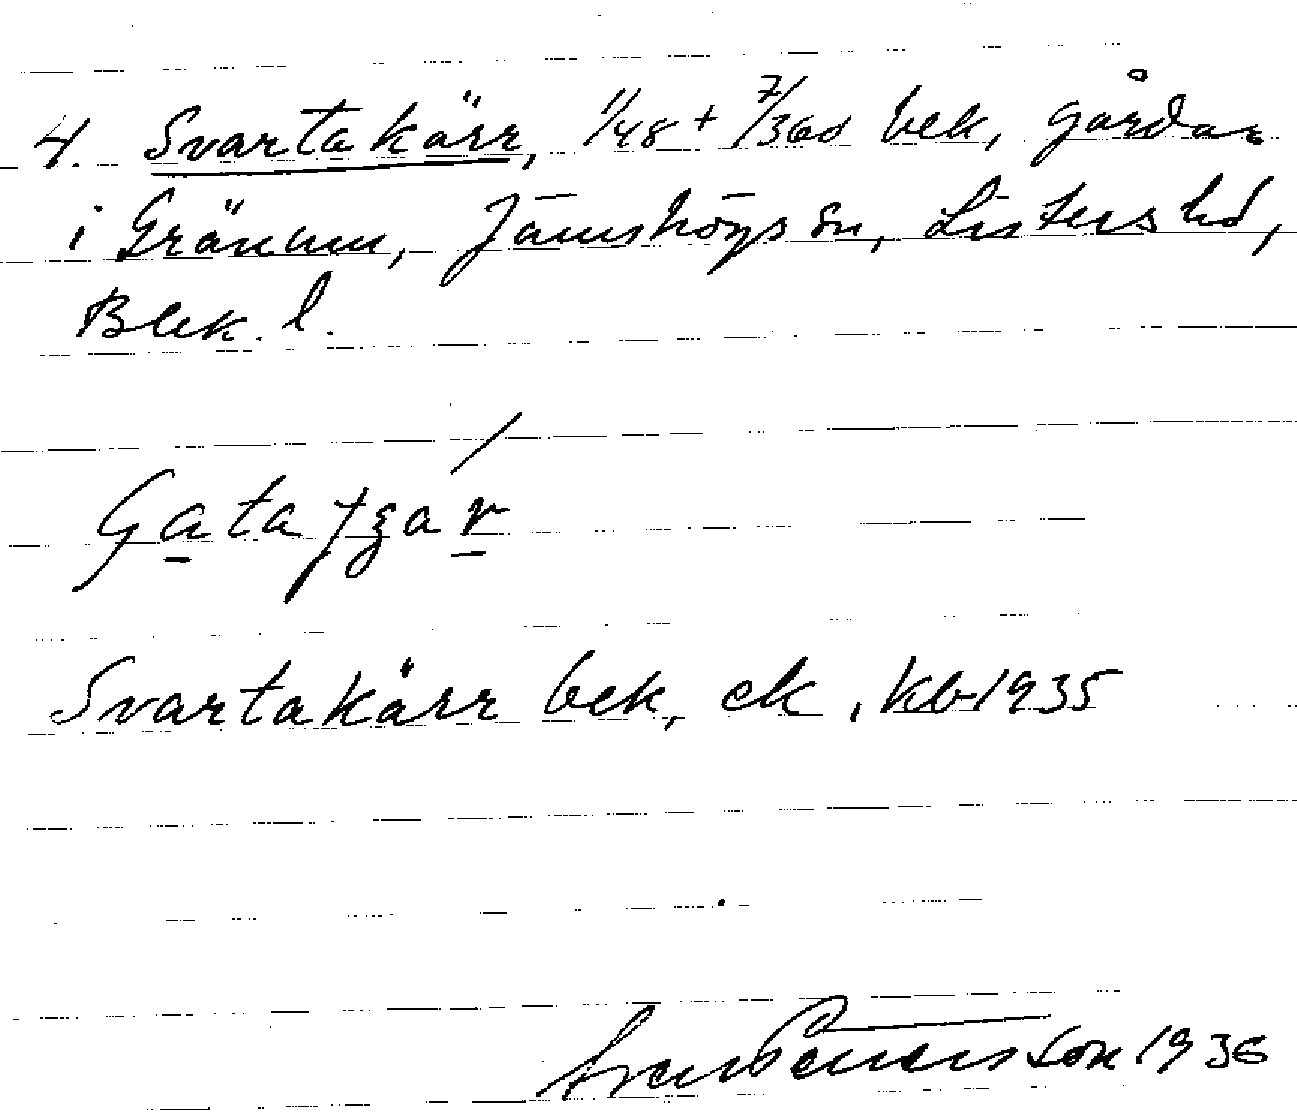 4. Svartakärr, 1/48 + 7/360 bek, gårdar
i Gränum, Jämshögs sn, Listers hd,
Blek. l.
Svartakärr bek, ek, kb 1935
1936